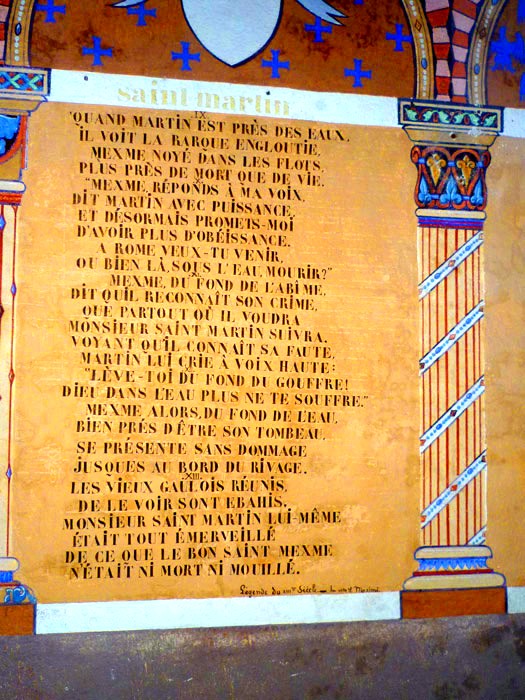 saint martin
IX
"QUAND MARTIN EST PRÈS DES EAUX,
IL VOIT LA BARQUE ENGLOUTIE,
MEXME NOYÉ DANS LES FLOTS,
PLUS PRÈS DE MORT QUE DE VIE.
"MEXME, RÉPONDS À MA VOIX,
DIT MARTIN AVEC PUISSANCE,
ET DÉSORMAIS PROMETS-MOI
D'AVOIR PLUS D'OBÉISSANCE.
A ROME VEUX-TU VENIR,
OU BIEN LÀ, SOUS L'EAU, MOURIR?"
MEXME, DU FOND DE L'ABÎME,
DIT QU'IL RECONNAÎT SON CRIME,
QUE PARTOUT OÙ IL VOUDRA
MONSIEUR SAINT MARTIN SUIVRA.
VOYANT QU'IL CONNAÎT SA FAUTE,
MARTIN LUI CRIE À VOIX HAUTE:
"LÈVE-TOI DU FOND DU GOUFFRE!
DIEU DANS L'EAU PLUS NE TE SOUFFRE."
MEXME ALORS, DU FOND DE L'EAU,
BIEN PRÈS D'ÊTRE SON TOMBEAU,
SE PRÉSENTE SANS DOMMAGE
JUSQUES AU BORD DU RIVAGE.
XIII
LES VIEUX GAULOIS RÉUNIS,
DE LE VOIR SONT EBAHIS.
MONSIEUR SAINT MARTIN LUI-MÊME
ÉTAIT TOUT ÉMERVEILLÉ
DE CE QUE LE BON SAINT MEXME
N'ÉTAIT NI MORT NI MOUILLÉ.
Légende du XIIIe Siècle